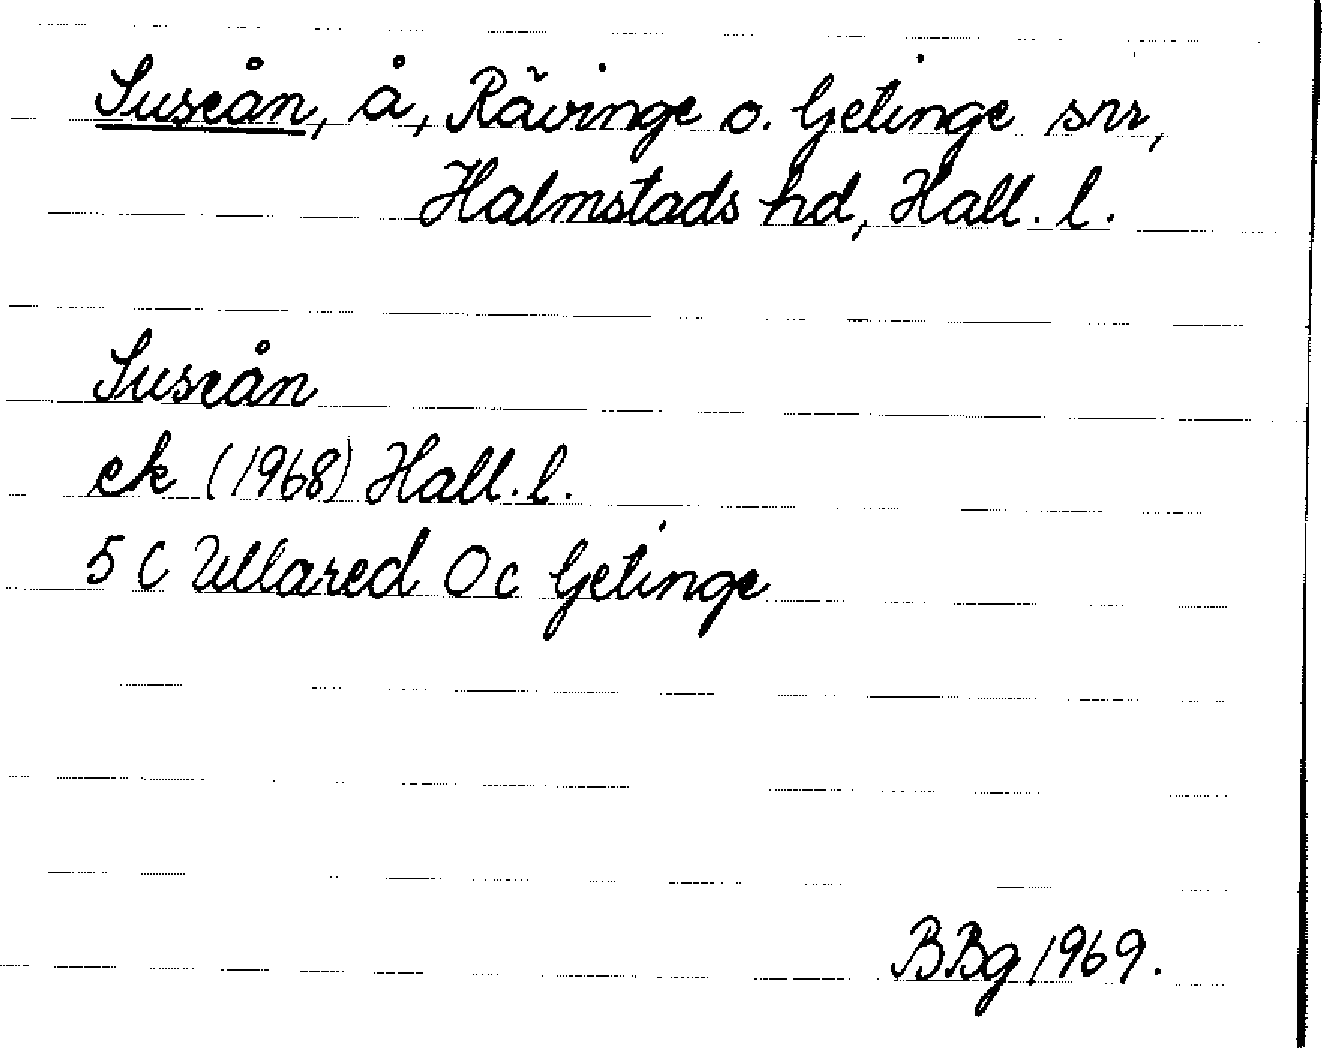 Suseån, å, Rävinge o. Getinge snr,
Halmstads hd, Hall. l.
Suseån
ek (1968) Hall. l.
5 C Ullared 0 c Getinge
BBg 1969.